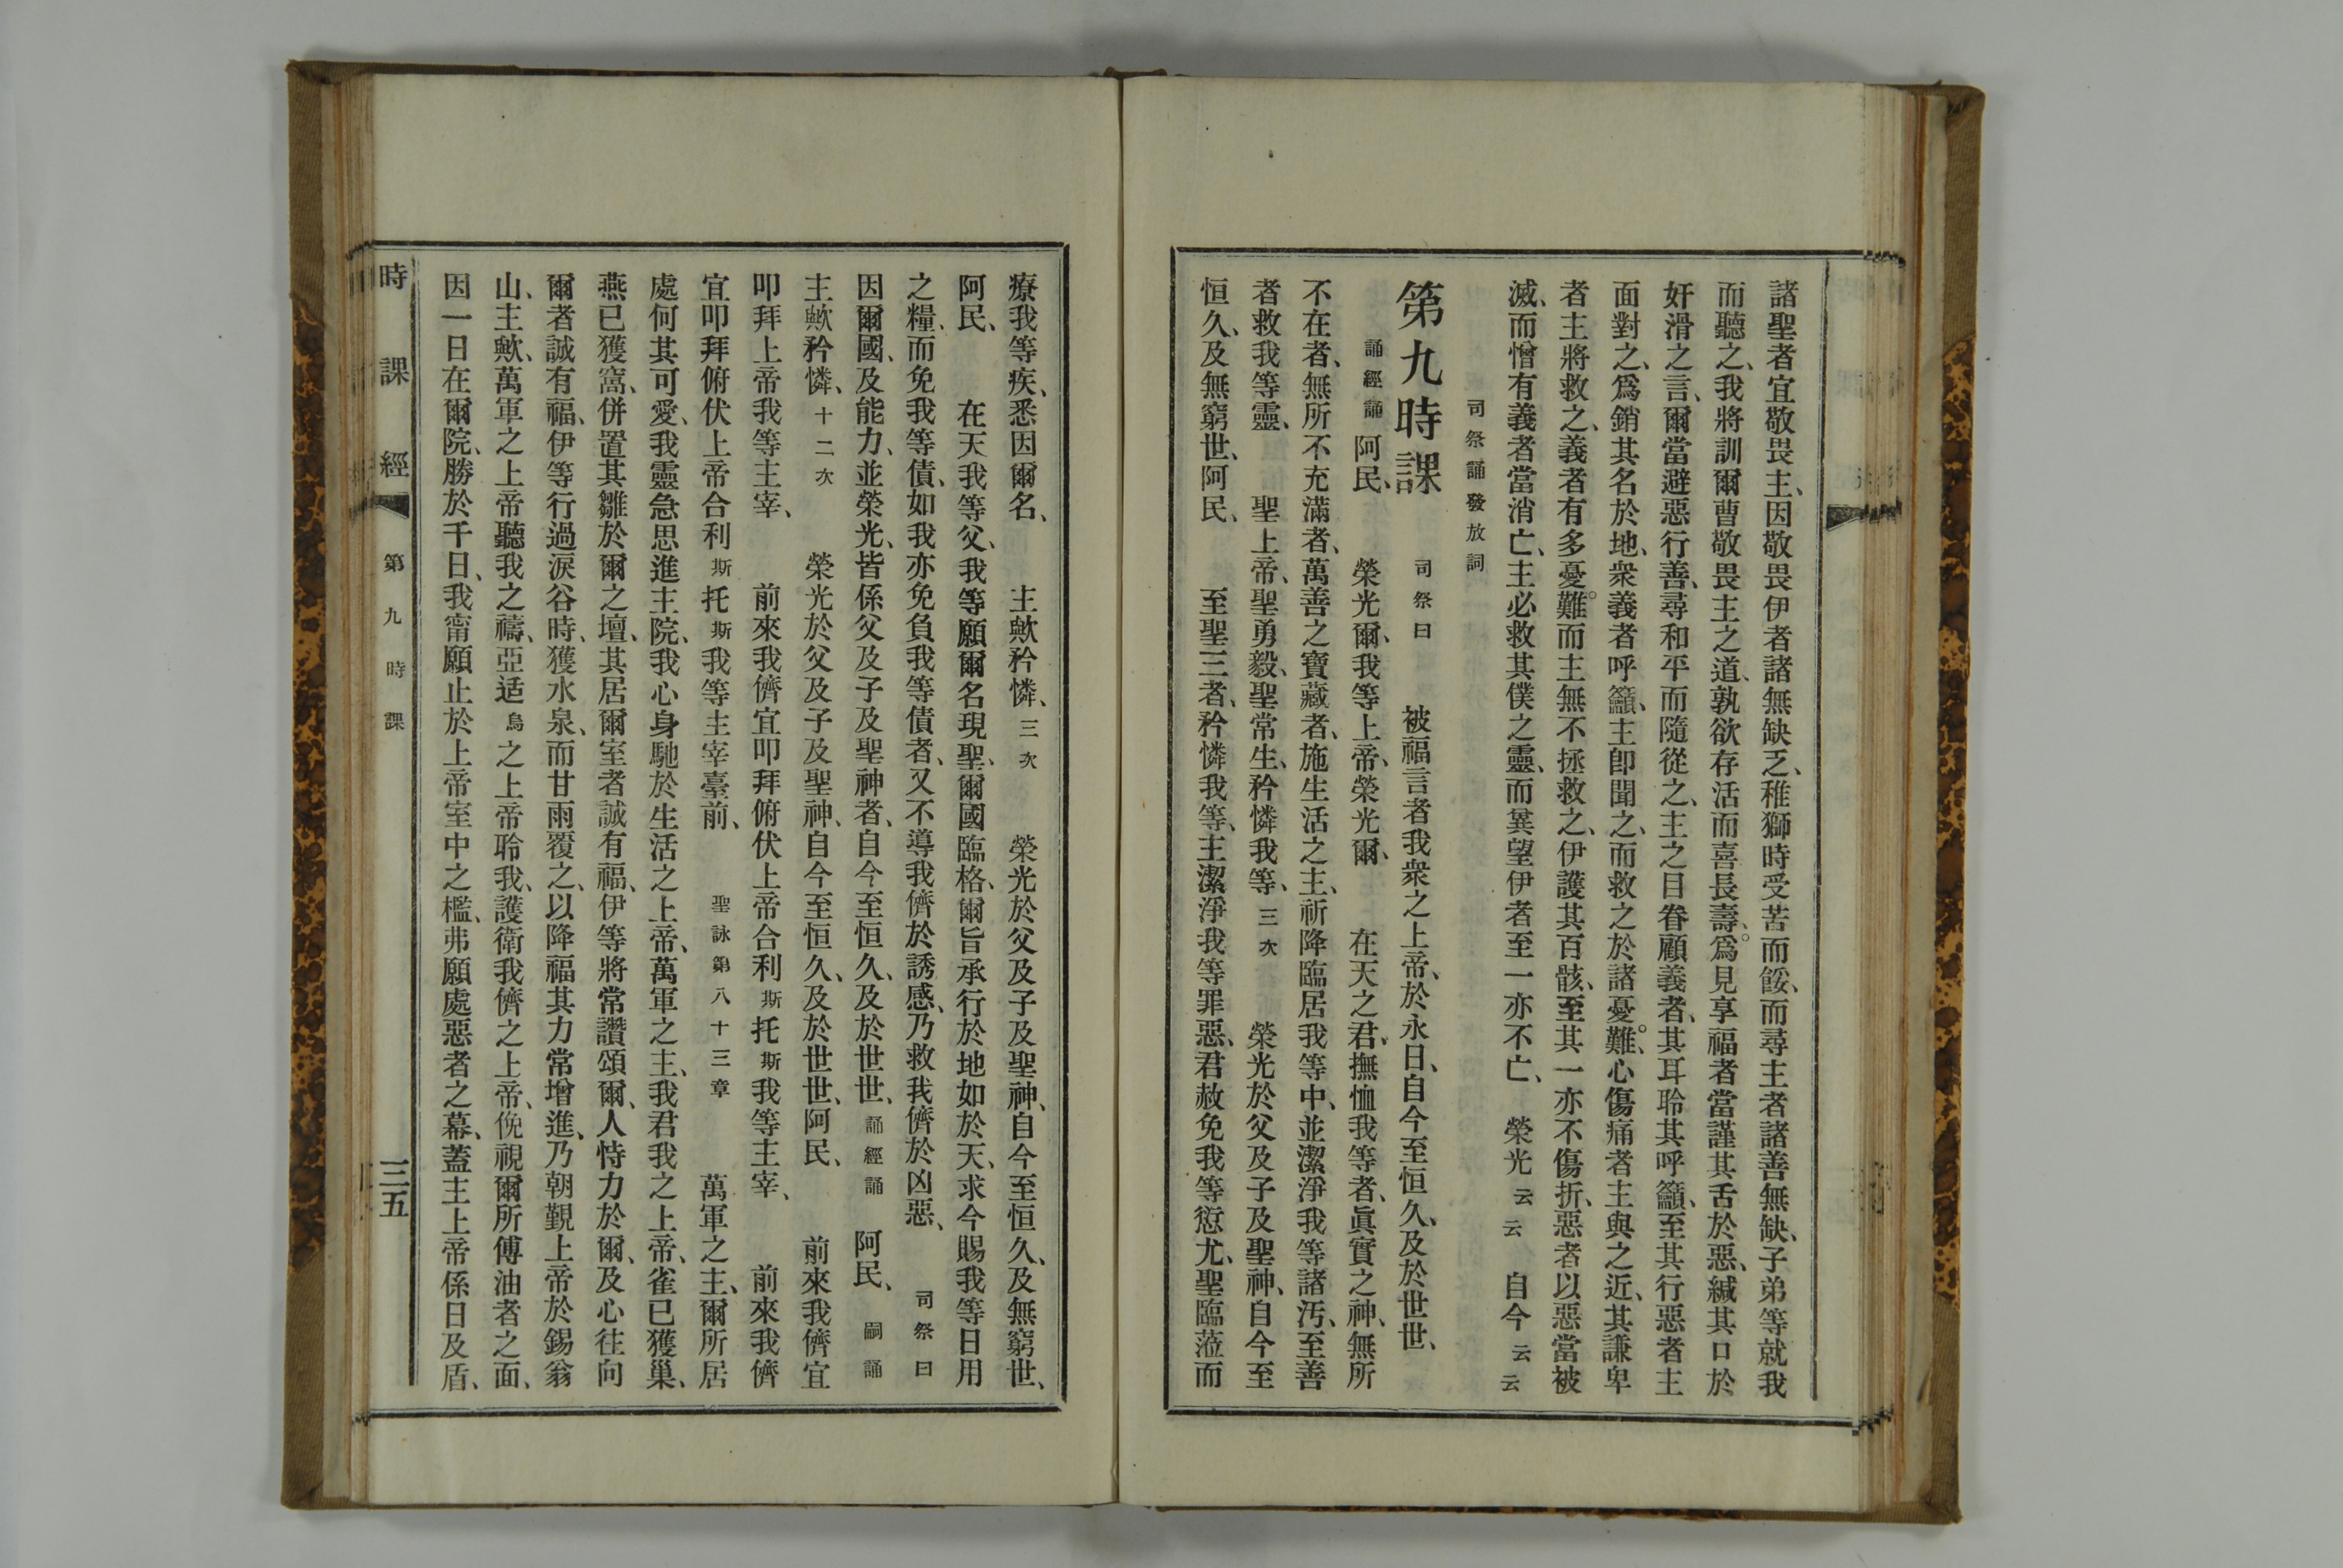 諸聖者宜敬畏主、因敬畏伊者諸無缺乏、稚獅時受苦而餒、而尋主者諸善無缺、子弟等就我
而聽之、我將訓爾曹敬畏主之道、孰欲存活而喜長壽、爲見享福者當謹其舌於惡、緘其口於
奸滑之言、爾當避惡行善、尋和平而隨從之、主之目眷顧義者、其耳聆其呼籲、至其行惡者主
面對之、爲銷其名於地、衆義者呼籲、主卽聞之、而救之於諸憂難、心傷痛者主與之近、其謙卑
者主將救之、義者有多憂難。而主無不拯救之、伊護其百骸、至其一亦不傷折、惡者以惡當被
滅、而憎有義者當消亡、主必救其僕之靈、而冀望伊者至一亦不亡、 榮光云云 自今云云
司祭誦發放詞
第九時課 司祭曰 被福言者我衆之上帝、於永日、自今至恒久、及於世世、
誦經誦 阿民、 榮光爾、我等上帝、榮光爾、 在天之君、撫恤我等者、眞實之神、無所
不在者、無所不充滿者、萬善之寶藏者、施生活之主、祈降臨居我等中、並潔淨我等諸汚、至善
者救我等靈、 聖上帝、聖勇毅、聖常生、矜憐我等、三次 榮光於父及子及聖神、自今至
恒久、及無窮世、阿民、 至聖三者、矜憐我等、主潔淨我等罪惡、君赦免我等愆尤、聖臨蒞而
療我等疾、悉因爾名、 主歟矜憐、三次 榮光於父及子及聖神、自今至恒久、及無窮世、
阿民、 在天我等父、我等願爾名現聖、爾國臨格、爾旨承行於地如於天、求今賜我等日用
之糧、而免我等債、如我亦免負我等債者、又不導我儕於誘感、乃救我儕於凶惡、 司祭曰
因爾國、及能力、並榮光、皆係父及子及聖神者、自今至恒久、及於世世、誦經誦 阿民、 嗣誦
主歟矜憐、十二次 榮光於父及子及聖神、自今至恒久、及於世世、阿民、 前來我儕宜
叩拜上帝我等主宰、 前來我儕宜叩拜俯伏上帝合利斯托斯我等主宰、 前來我儕
宜叩拜俯伏上帝合利斯托斯我等主宰臺前、 聖詠第八十三章 萬軍之主、爾所居
處何其可愛、我靈急思進主院、我心身馳於生活之上帝、萬軍之主、我君我之上帝、雀已獲巢、
燕已獲窩、併置其雛於爾之壇、其居爾室者誠有福、伊等將常讚頌爾、人恃力於爾、及心往向
爾者誠有福、伊等行過淚谷時、獲水泉、而甘雨覆之、以降福其力常增進、乃朝覲上帝於錫翁
山、主歟、萬軍之上帝聽我之禱、亞适烏之上帝聆我、護衛我儕之上帝、俛視爾所傅油者之面、
因一日在爾院、勝於千日、我甯願止於上帝室中之檻、弗願處惡者之幕、蓋主上帝係日及盾、
時課經 第九時課 三五